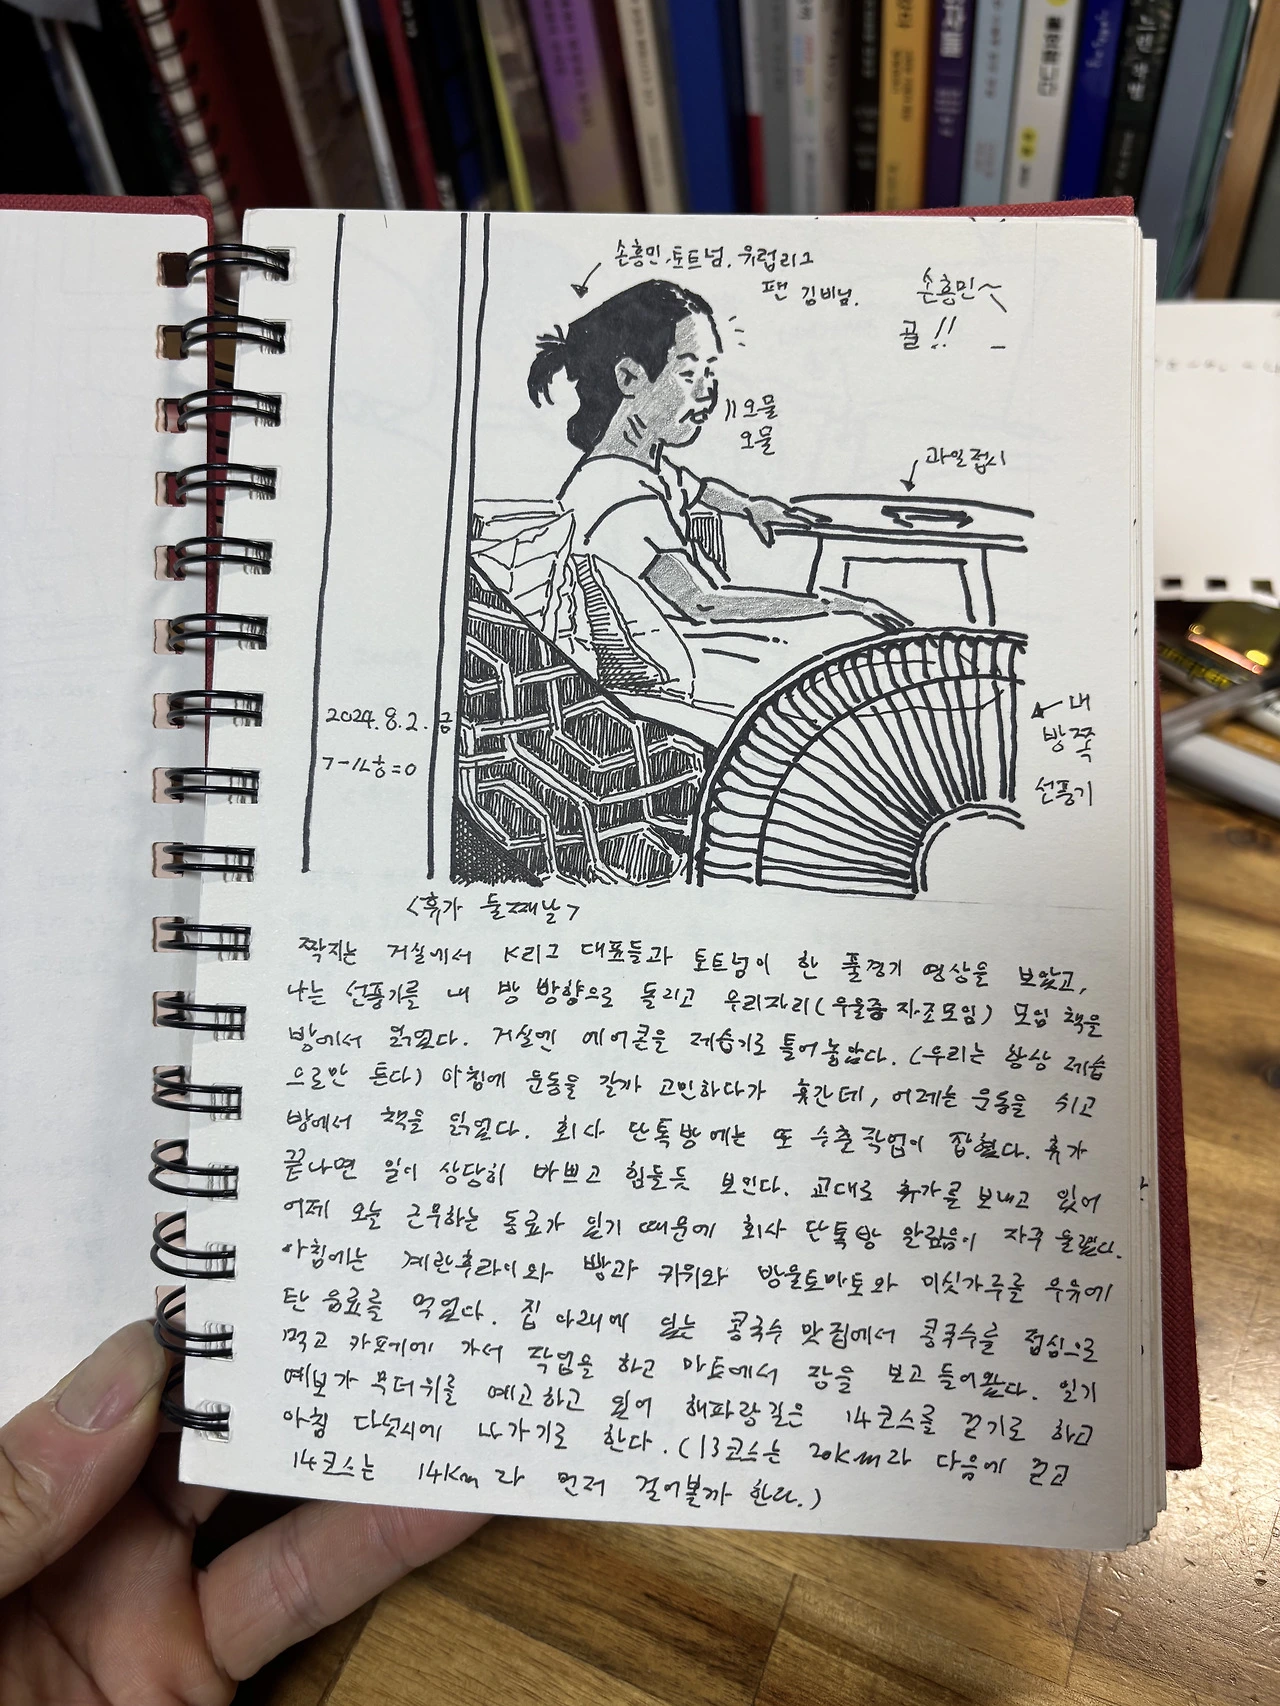 손흥민.토트넘. 유럽리그
팬 김비님.
손흥민~
골!!
오물
오물
과일접시
내
방쪽
선풍기
2024.8.2. 금
<휴가 둘째날>
짝지는 거실에서 K리그 대표들과 토트넘이 한 축경기 영상을 보았고,
나는 선풍기를 내 방 방향으로 돌리고 우리자리(우울증 자조모임) 모임 책을
방에서 읽었다. 거실엔 에어콘을 제습기로 틀어놓았다. (우리는 항상 제습
으로만 튼다) 아침에 운동을 갈까 고민하다가 휴간데, 어제는 운동을 쉬고
방에서 책을 읽었다. 회사 단톡방에는 또 수출작업이 잡혔다. 휴가
끝나면 일이 상당히 바쁘고 힘들듯 보인다. 교대로 휴가를 보내고 있어
어제 오늘 근무하는 동료가 있기 때문에 회사 단톡방 알림음이 자주 울렸다.
아침에는 계란후라이와 빵과 키위와 방울토마토와 미싯가루를 우유에
탄 음료를 먹었다. 집 아래에 있는 콩국수 맛집에서 콩국수를 점심으로
먹고 카페에 가서 작업을 하고 마트에서 장을 보고 들어왔다. 일기
예보가 무더위를 예고하고 있어 해파랑길은 14코스를 걷기로 하고
아침 다섯시에 나가기로 한다. (13코스는 20km라 다음에 걷고
14코스는 14km라 먼저 걸어볼까 한다.)